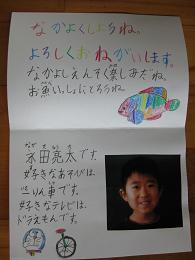 なかよくしようね。
よろしくおねがいします。
なかよしえんそく楽しみだね。
お魚いっしょにとろうね。
永田亮太です。
好きなあそびは、
一りん車です。
好きなテレビは、
ドラえもんです。